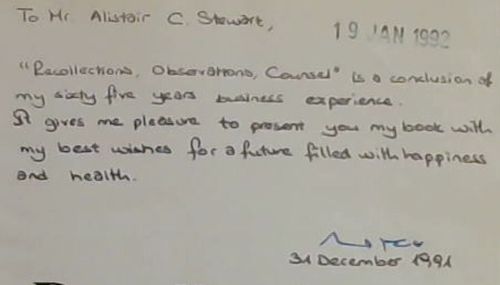 To Mr. Alistair C. Stewart,
19 JAN 1992
"Recollections, Observations, Counsel" is a conclusion of
my sixty five years business experience.
It gives me pleasure to present you my book with
my best wishes for a future filled with happiness
and health.
31 December 1991